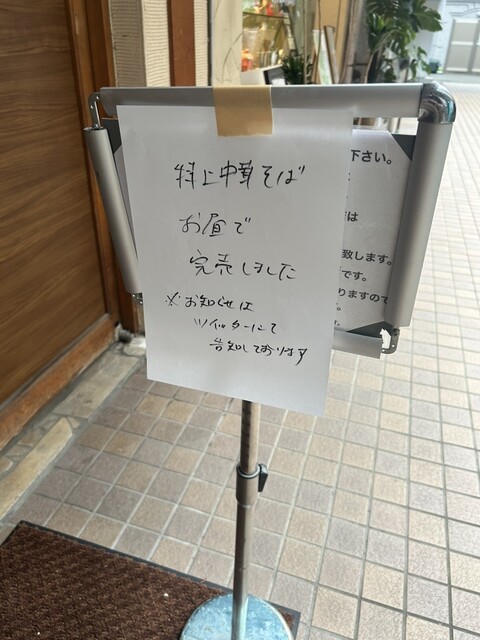 特上中華そば
お昼で
完売しました
※お知らせは
ツイッターにて
告知しております
下さい。
は
致します。
です。
りますので